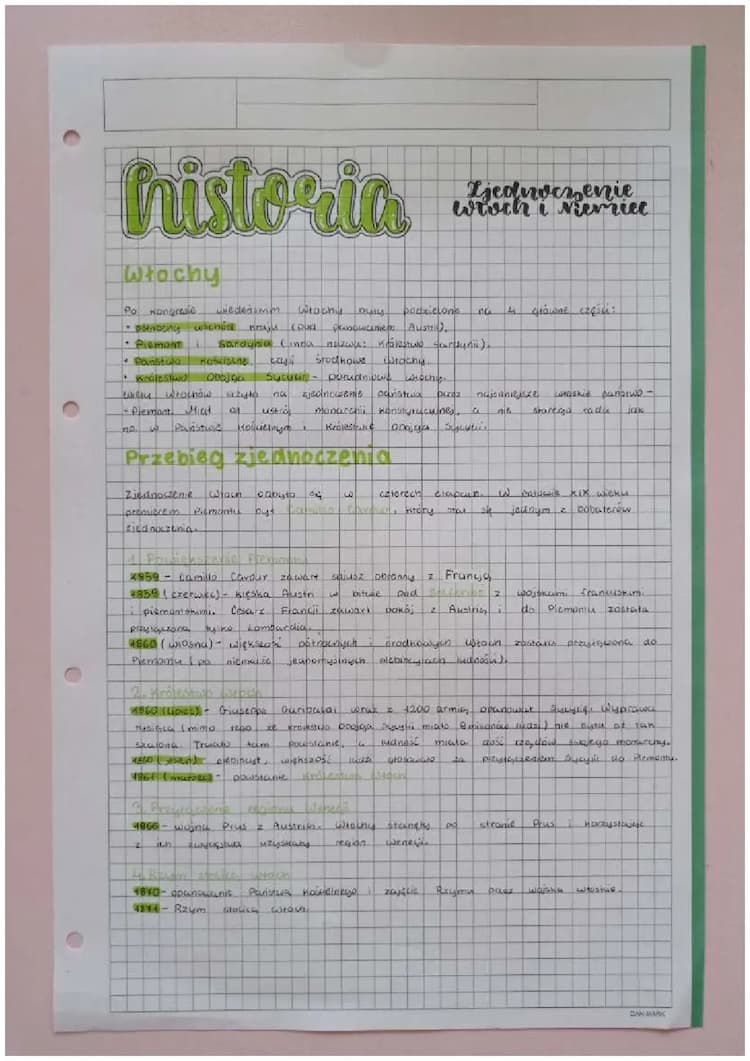 historia
Zjednoczenie
włoch i Niemiec
Włochy
Po kongresie wiedeńskim Włochy były podzielone na 4 główne części:
• północny wschód kraju (pod panowaniem Austrii).
• Piemont i Sardynia (inna nazwa: Królestwo Sardynii).
• Państwo Kościelne, czyli środkowe Włochy.
• Królestwo Obojga Sycylii - południowe włochy.
Wielu włochów liczyło na zjednoczenie państwa przez najsilniejsze włoskie państwo -
- Piemont. Miał on ustrój monarchii konstytucyjnej, a nie starego ładu jak
np. w Państwie Kościelnym i Królestwie Obojga Sycylii.
Przebieg zjednoczenia
Zjednoczenie Włoch odbyło się w czterech etapach. W połowie XIX wieku
premierem Piemontu był Camillo Cavour, który stał się jednym z bohaterów
zjednoczenia.
1. Powiększenie Piemontu
1859 - Camillo Cavour zawarł sojusz obronny z Francją
1859 (czerwiec) - klęska Austrii w bitwie pod Solferino z wojskami francuskimi
i piemonckimi. Cesarz Francji zawarł pokój z Austrią i do Piemontu została
przyłączona tylko Lombardia.
1860 (wiosna) - większość północnych i środkowych Włoch została przyłączona do
Piemontu (po niemalże jednomyślnych plebiscytach ludności).
2. Królestwo włoch
1860 (lipiec) - Giuseppe Garibaldi wraz z 1200 armią opanował Sycylię. Wyprawa
tysiąca (mimo tego, że królestwo Obojga Sycylii miało ludzi) nie była aż tak
szalona. Trwało tam powstanie, a ludność miała dość rządów swojego monarchy.
1860 (jesień) plebiscyt, większość ludzi głosowało za przyłączeniem Sycylii do Piemontu.
1861 (marzec) - powstanie Królestwa Włoch
3. Przyłączenie regionu Wenecji
1866 - wojna Prus z Austrią. Włochy stanęły po stronie Prus i korzystając
z ich zwycięstwa uzyskały region Wenecji.
4. Rzym stolicą włoch
1870 - opanowanie Państwa Kościelnego i zajęcie Rzymu przez wojska włoskie.
1871 - Rzym stolicą Włoch.
DAN-MARK